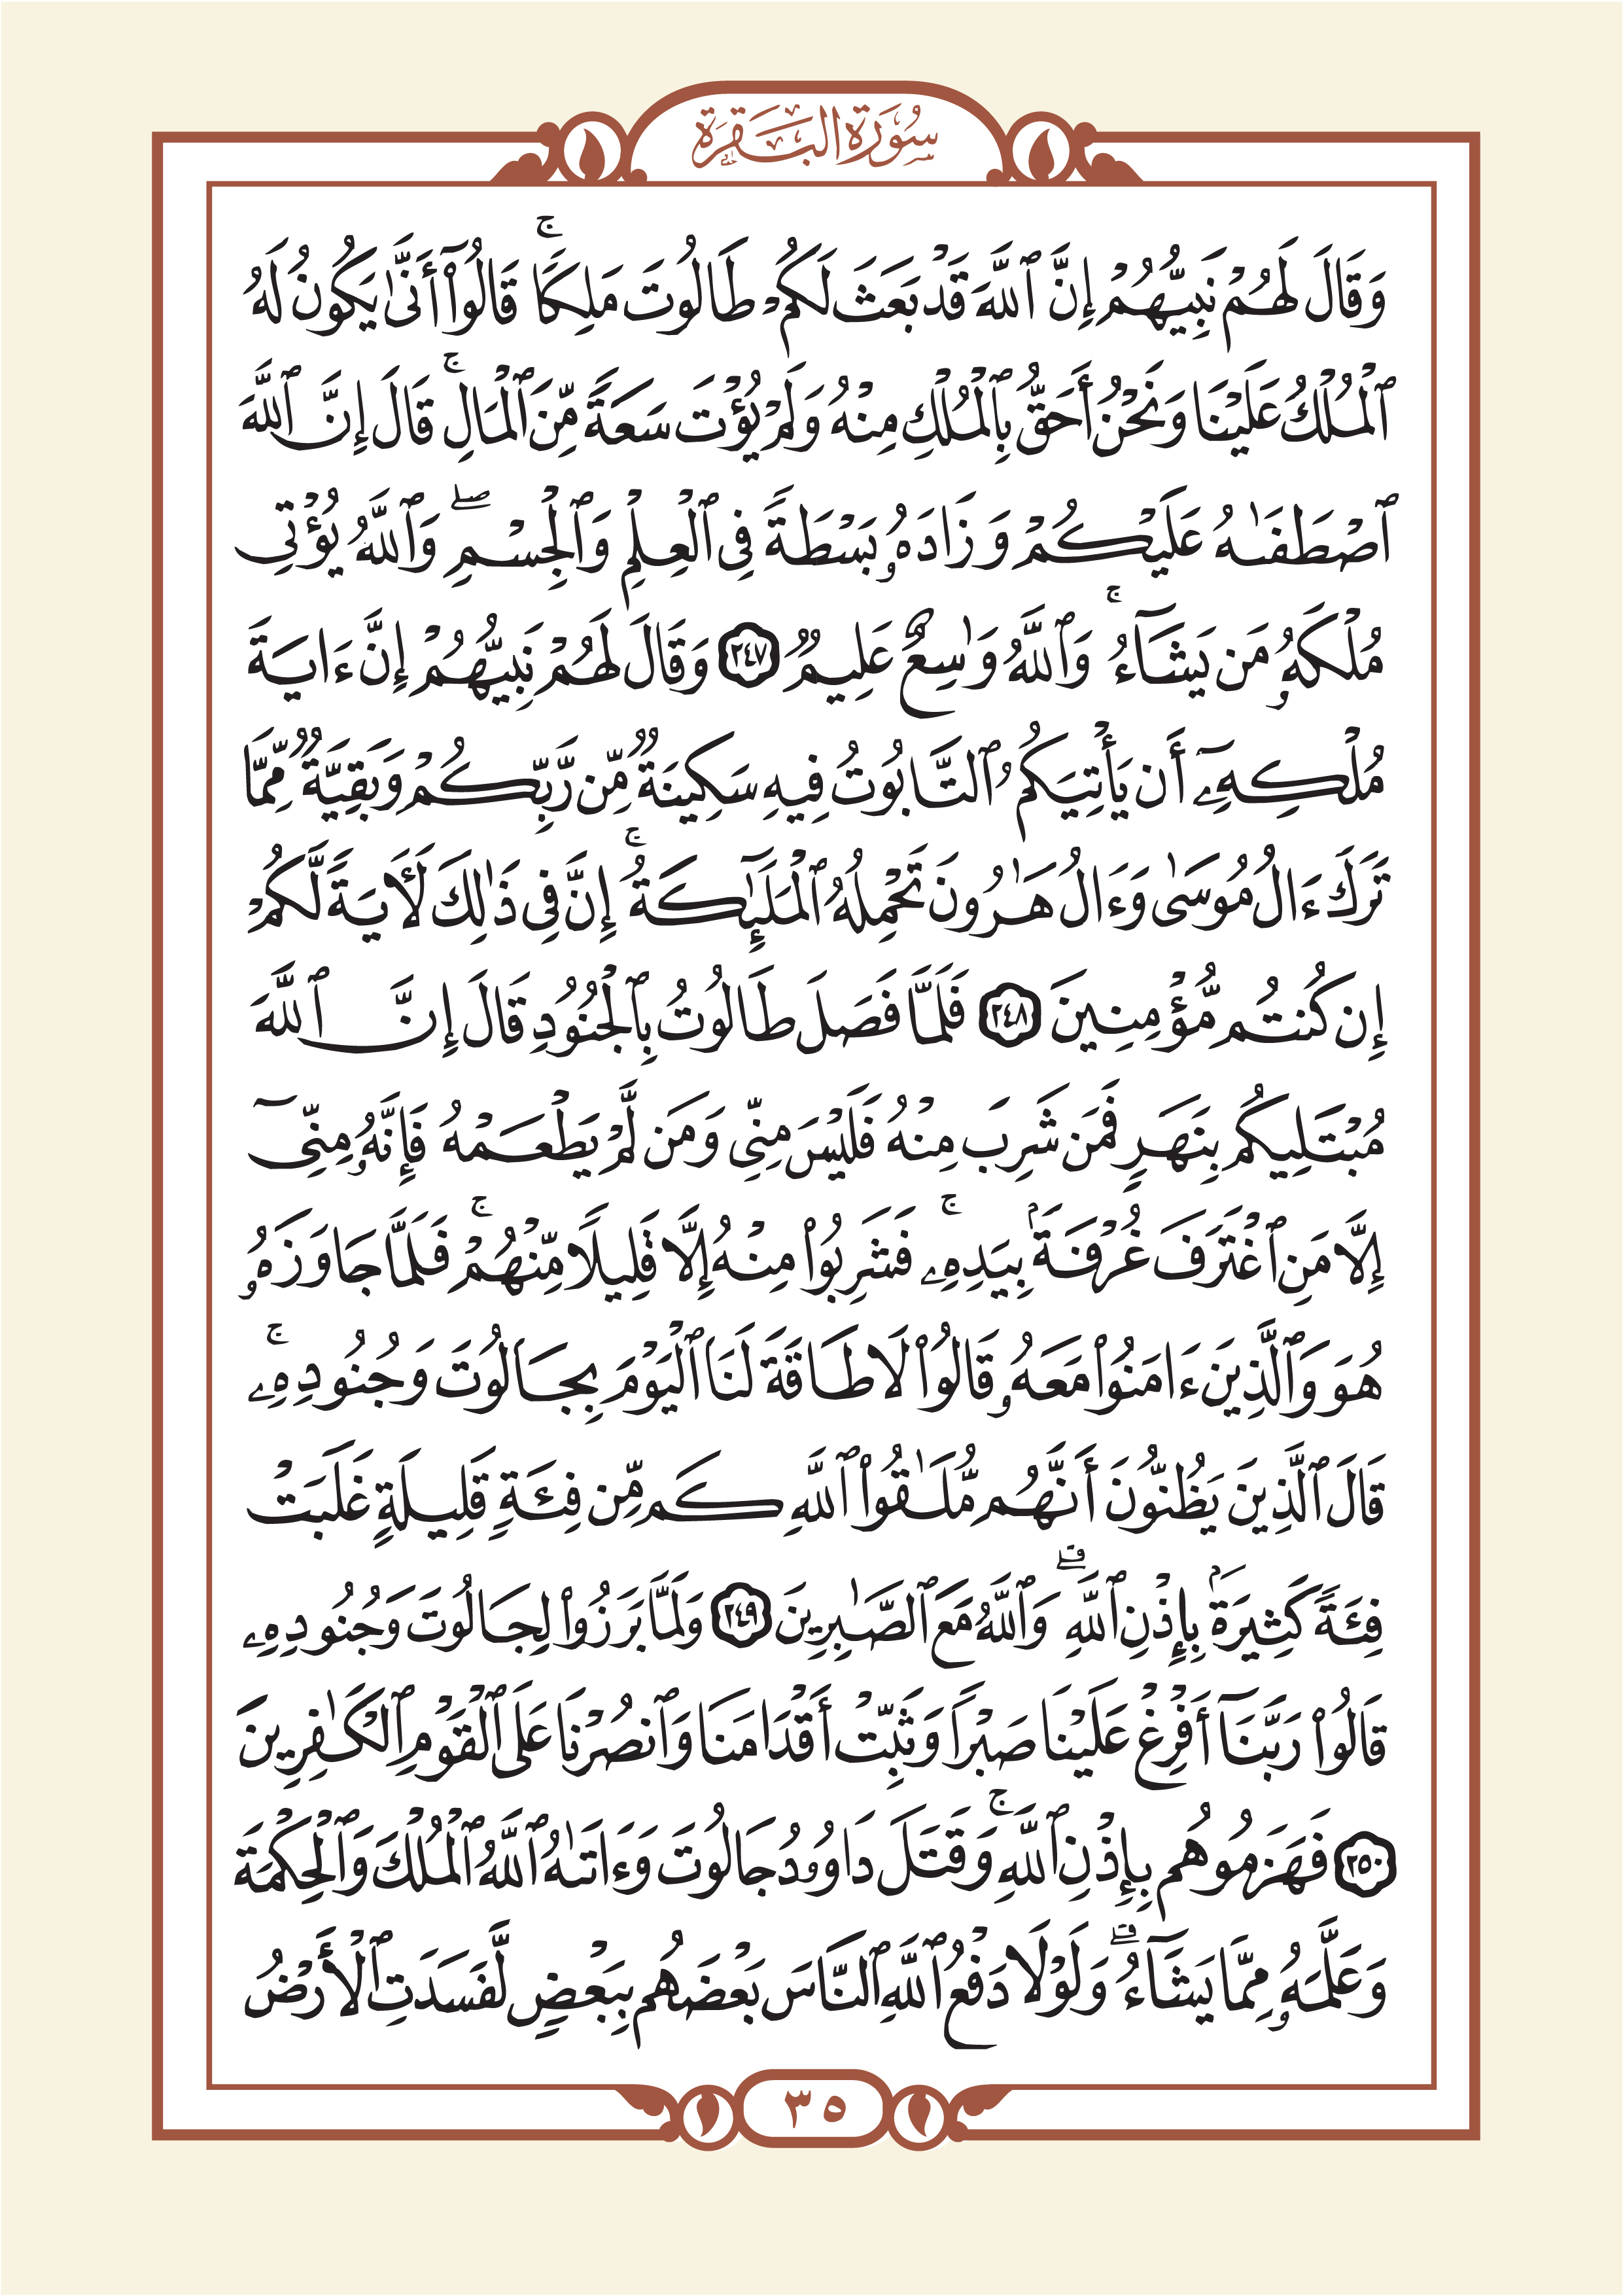 سُورَةُ البَقَرَةِ
وَقَالَ لَهُمْ نَبِيُّهُمْ إِنَّ ٱللَّهَ قَدْ بَعَثَ لَكُمْ طَالُوتَ مَلِكًاۚ قَالُوٓاْ أَنَّىٰ يَكُونُ لَهُ
ٱلْمُلْكُ عَلَيْنَا وَنَحْنُ أَحَقُّ بِٱلْمُلْكِ مِنْهُ وَلَمْ يُؤْتَ سَعَةً مِّنَ ٱلْمَالِۚ قَالَ إِنَّ ٱللَّهَ
ٱصْطَفَىٰهُ عَلَيْكُمْ وَزَادَهُۥ بَسْطَةً فِى ٱلْعِلْمِ وَٱلْجِسْمِۖ وَٱللَّهُ يُؤْتِى
مُلْكَهُۥ مَن يَشَآءُۚ وَٱللَّهُ وَٰسِعٌ عَلِيمٌ ٢٤٧ وَقَالَ لَهُمْ نَبِيُّهُمْ إِنَّ ءَايَةَ
مُلْكِهِۦٓ أَن يَأْتِيَكُمُ ٱلتَّابُوتُ فِيهِ سَكِينَةٌ مِّن رَّبِّكُمْ وَبَقِيَّةٌ مِّمَّا
تَرَكَ ءَالُ مُوسَىٰ وَءَالُ هَـٰرُونَ تَحْمِلُهُ ٱلْمَلَـٰٓئِكَةُۚ إِنَّ فِى ذَٰلِكَ لَـَٔايَةً لَّكُمْ
إِن كُنتُم مُّؤْمِنِينَ ٢٤٨ فَلَمَّا فَصَلَ طَالُوتُ بِٱلْجُنُودِ قَالَ إِنَّ ٱللَّهَ
مُبْتَلِيكُم بِنَهَرٍ فَمَن شَرِبَ مِنْهُ فَلَيْسَ مِنِّى وَمَن لَّمْ يَطْعَمْهُ فَإِنَّهُۥ مِنِّىٓ
إِلَّا مَنِ ٱغْتَرَفَ غُرْفَةَۢ بِيَدِهِۦۚ فَشَرِبُواْ مِنْهُ إِلَّا قَلِيلًا مِّنْهُمْۚ فَلَمَّا جَاوَزَهُۥ
هُوَ وَٱلَّذِينَ ءَامَنُواْ مَعَهُۥ قَالُواْ لَا طَاقَةَ لَنَا ٱلْيَوْمَ بِجَالُوتَ وَجُنُودِهِۦۚ
قَالَ ٱلَّذِينَ يَظُنُّونَ أَنَّهُم مُّلَـٰقُواْ ٱللَّهِ كَم مِّن فِئَةٍ قَلِيلَةٍ غَلَبَتْ
فِئَةً كَثِيرَةَۢ بِإِذْنِ ٱللَّهِۗ وَٱللَّهُ مَعَ ٱلصَّـٰبِرِينَ ٢٤٩ وَلَمَّا بَرَزُواْ لِجَالُوتَ وَجُنُودِهِۦ
قَالُواْ رَبَّنَآ أَفْرِغْ عَلَيْنَا صَبْرًا وَثَبِّتْ أَقْدَامَنَا وَٱنصُرْنَا عَلَى ٱلْقَوْمِ ٱلْكَـٰفِرِينَ
٢٥٠ فَهَزَمُوهُم بِإِذْنِ ٱللَّهِۚ وَقَتَلَ دَاوُۥدُ جَالُوتَ وَءَاتَىٰهُ ٱللَّهُ ٱلْمُلْكَ وَٱلْحِكْمَةَ
وَعَلَّمَهُۥ مِمَّا يَشَآءُۗ وَلَوْلَا دَفْعُ ٱللَّهِ ٱلنَّاسَ بَعْضَهُم بِبَعْضٍ لَّفَسَدَتِ ٱلْأَرْضُ
٣٥